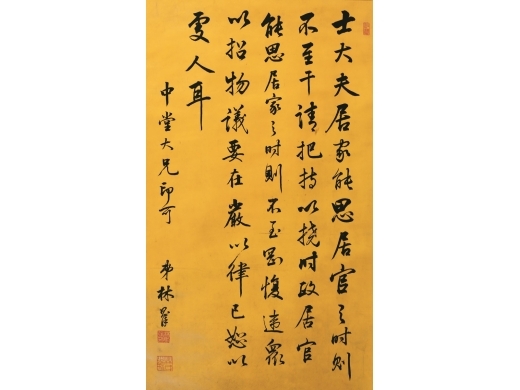 士大夫居家能思居官之时則
不至干請把持以撓时政居官
能思居家之时則不至愎違眾
以招物議要在嚴以律己恕以
處人耳
中堂大兄印可
弟林